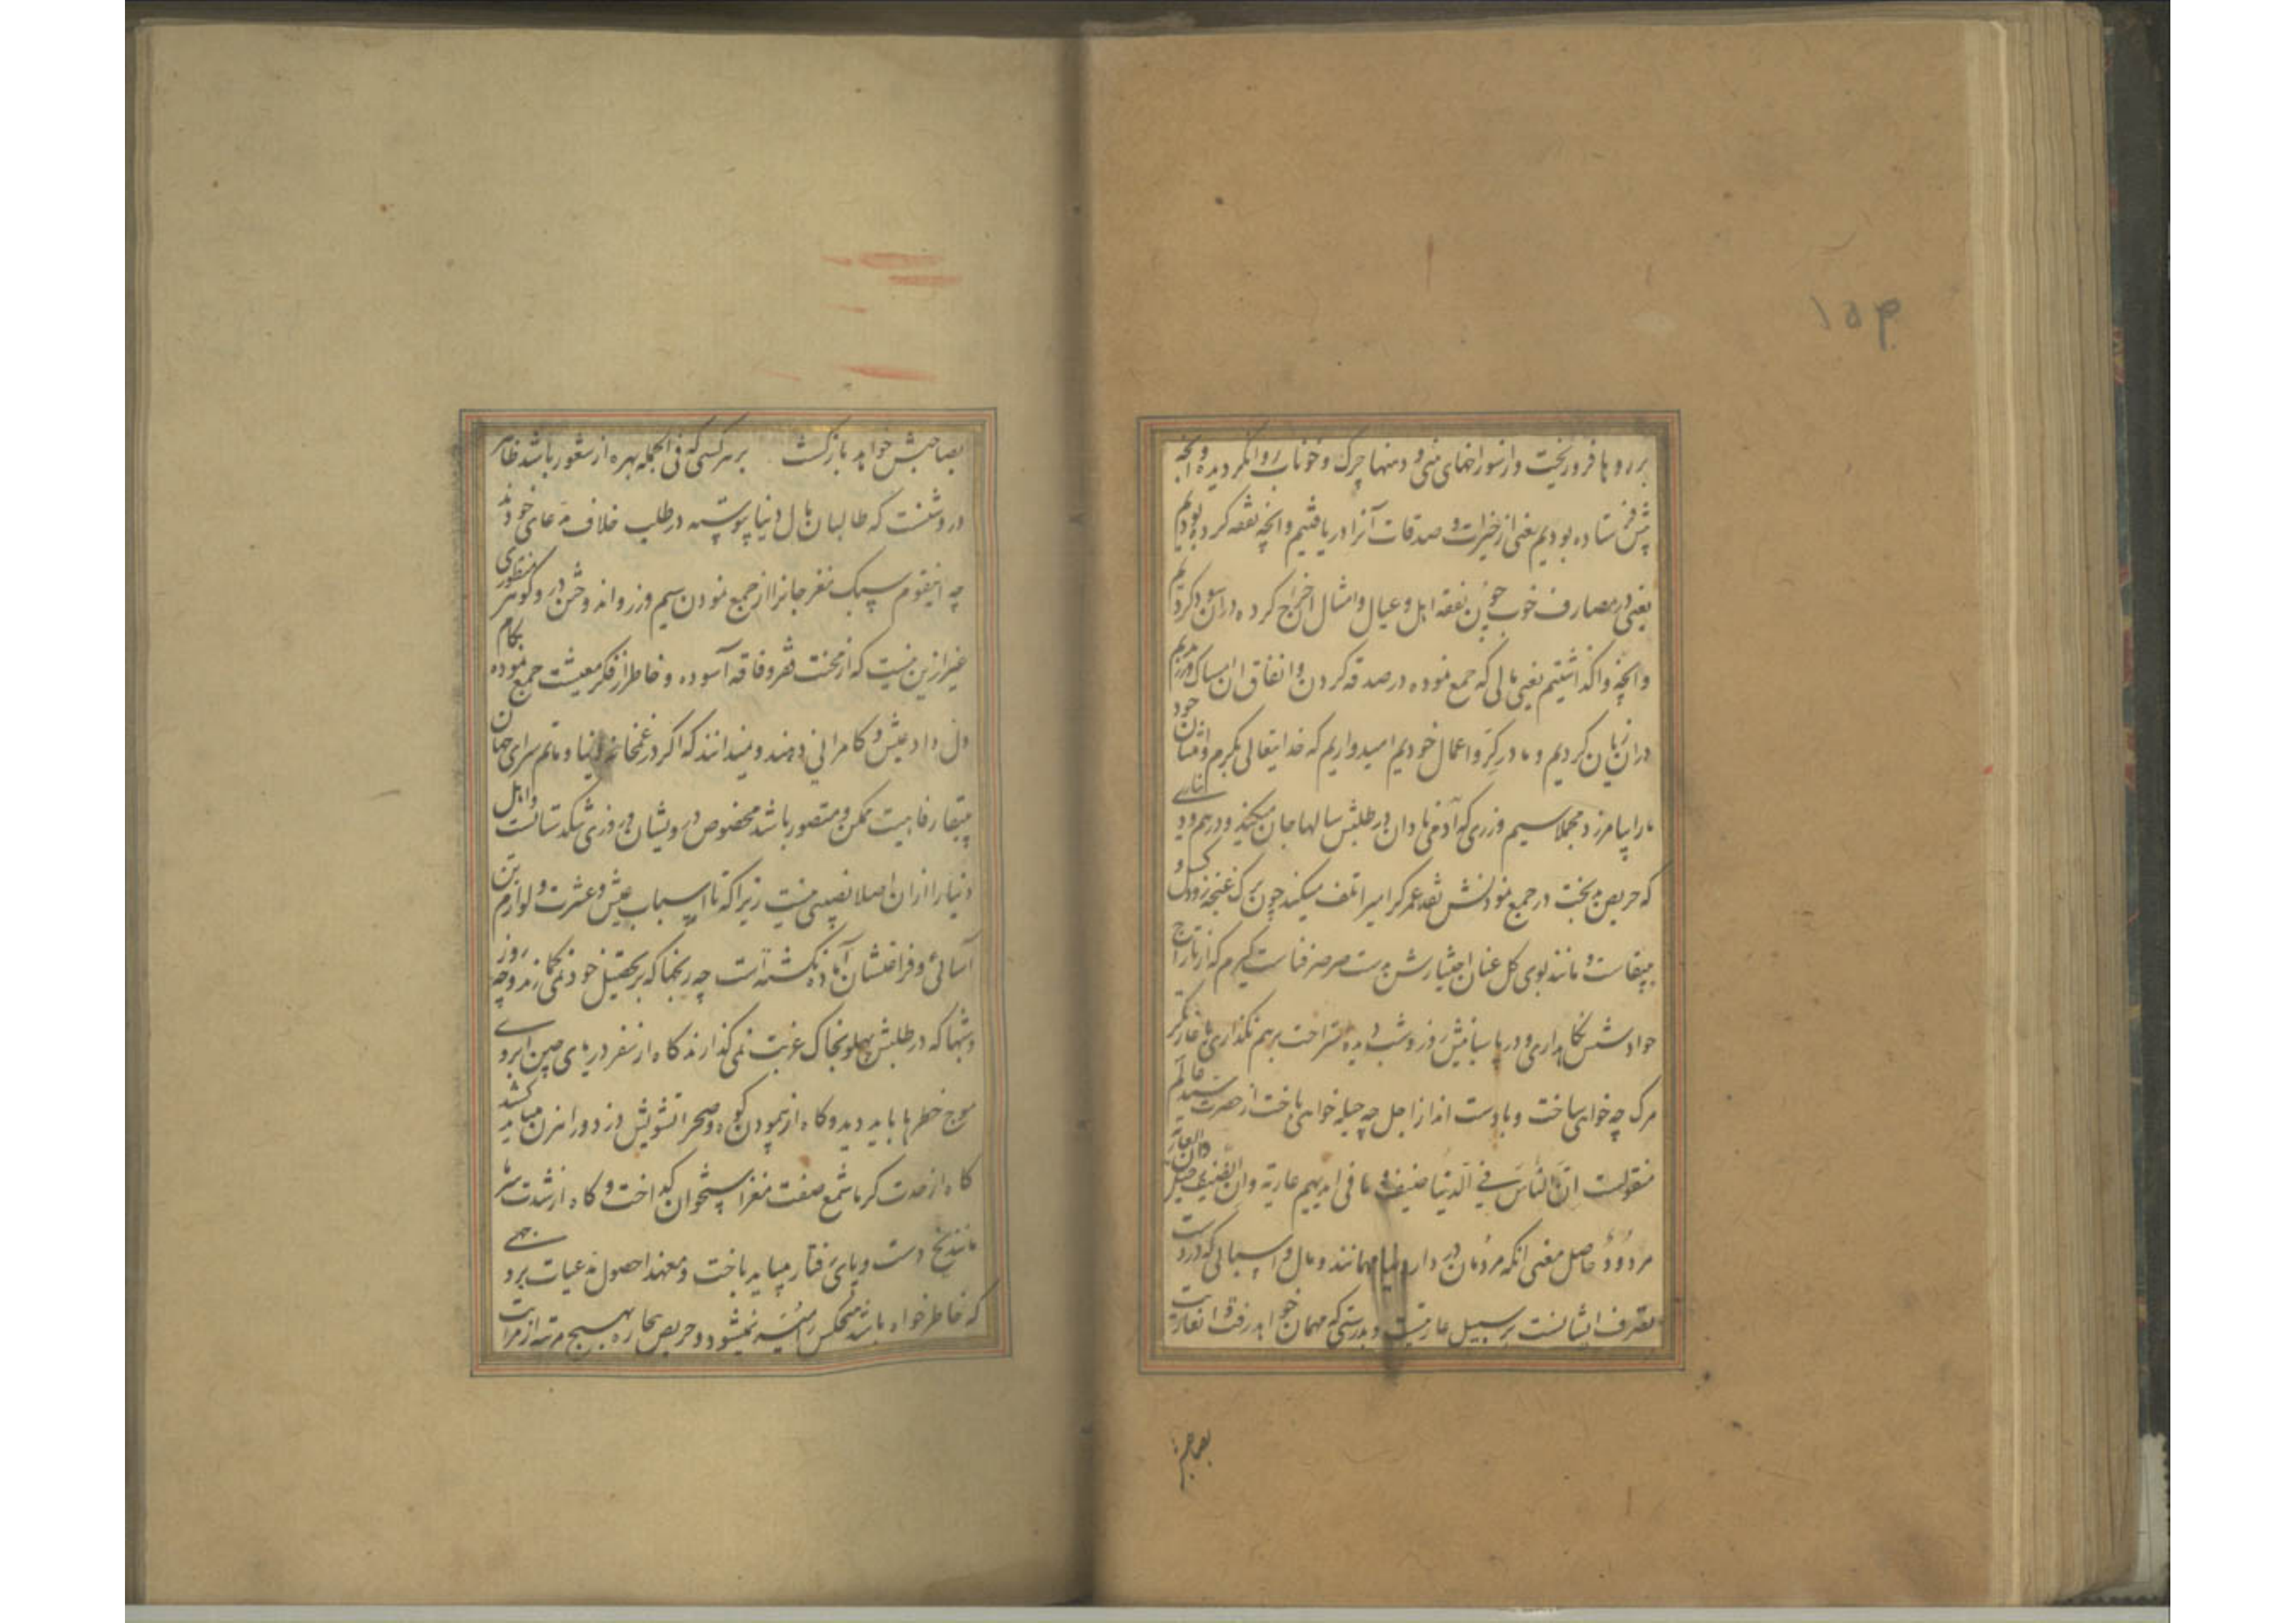 ۱۵۳
بر روها فرو ریخت و از سوراخهای بینی و دهنها چرک و خوناب روان گردیده و انچه
پیش فرستاده بودیم یعنی از خیرات و صدقات آنرا دریافتیم و انچه نفقه کرده بودیم
یعنی در مصارف خوب چون نفقه اهل و عیال و امثال ان خرج کرده دران سود کردیم
و انچه واگذاشتیم یعنی مالی که جمع نموده در صدقه کردن و انفاق ان امساک ورزیدیم
دران زیان کردیم و ما در گرو اعمال خودیم امیدواریم که خدایتعالی بکرم و احسان خود
ما را بیامرزد مجملا سیم و زری که آدمی نادان در طلبش سالها جان میکند و درهم و دیناری
که حریص بدبخت در جمع نمودنش نقد عمر گرامیرا تلف میکند چون برک غنچه زود کسل و
بیبقاست و مانند بوی کل عنان اختیارش بدست صرصر فناست گیرم که از تاراج
حوادثش نگاهداری و در پاسبانیش روز و شب دیده استراحت برهم نگذاری با غارتگر
مرک چه خواهی ساخت و با دست انداز اجل چه حیله خواهی باخت از حضرت سید عالم
منقولست ان الناس فی الدنیا ضیف و ما فی ایدیهم عاریة و ان الضیف راحل و ان العاریة
مردودة حاصل معنی انکه مردمان در دار دنیا مهمانند و مال و اسبابی که در دست
تصرف ایشانست بر سبیل عاریتست و بدرستی که مهمان خواهد رفت و ان عاریت
بصاحبش
بصاحبش خواهد بازگشت بر هر کسی که فی الجمله بهره از شعور باشد ظاهر
و روشنست که طالبان مال دنیا پیوسته در طلب خلاف مدعای خودند
چه اینقوم سبک مغز جانرا از جمع نمودن سیم و زر و اندوختن در و گوهر منظوری
غیر ازین نیست که از محنت فقر و فاقه آسوده و خاطر از فکر معیشت جمع نموده بکام
دل داد عیش و کامرانی دهند و نمیدانند که اگر در غمخانه دنیا و ماتم سرای جهان
بیبقا رفاهیت ممکن و متصور باشد مخصوص درویشان و روزی تنگدستانست و اهل
دنیا را از ان اصلا نصیبی نیست زیرا که تا اسباب عیش و عشرت و لوازم تن
آسائی و فراغتشان آماده نگشته است چه رنجها که بر تحصیل خود نمی گمارند و چه روز
و شبها که در طلبش پهلو بخاک غربت نمی گذارند گاه از سفر دریای چین ابروی
موج خطرها باید دید و گاه از پیمودن کوه و صحرا تشویش دزد و راهزن میباید کشید
گاه از حدت گرما شمع صفت مغز استخوان گداخت و گاه از شدت سرما
مانند یخ دست و پای رفتار میباید باخت و معهذا حصول مدعیات بر وجهی
که خاطر خواه باشد هیچکس را میسر نمیشود و حریص بیچاره بهیچ مرتبه از مراتب